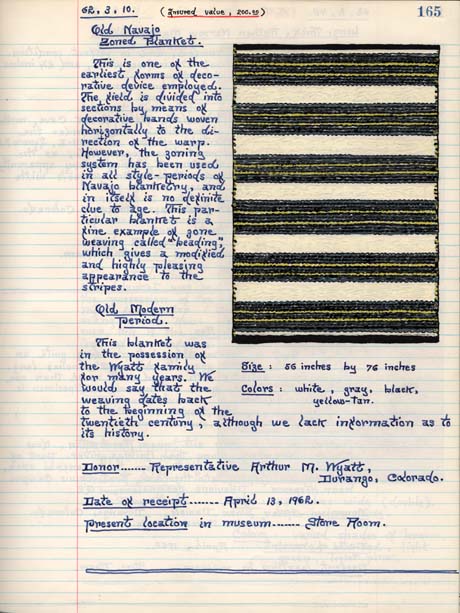 62.3.10. (Insured value, 200.00) 165
Old Navajo
Zoned Blanket.
This is one of the
earliest forms of deco-
rative device employed.
The field is divided into
sections by means of
decorative bands woven
horizontally to the di-
rection of the warp.
However, the zoning
system has been used
in all style-periods of
Navajo blanketry, and
in itself is no definite
clue to age. This par-
ticular blanket is a
fine example of zone
weaving called "beading",
which gives a modified
and highly pleasing
appearance to the
stripes.
Old Modern
Period.
This blanket was
in the possession of
the Wyatt family
for many years. We
would say that the
weaving dates back
to the beginning of the
twentieth century, although we lack information as to
its history.
Size: 56 inches by 76 inches
Colors: white, gray, black,
yellow-tan.
Donor------- Representative Arthur M. Wyatt,
Durango, Colorado.
Date of receipt------- April 13, 1962.
Present location in museum------- Stone Room.